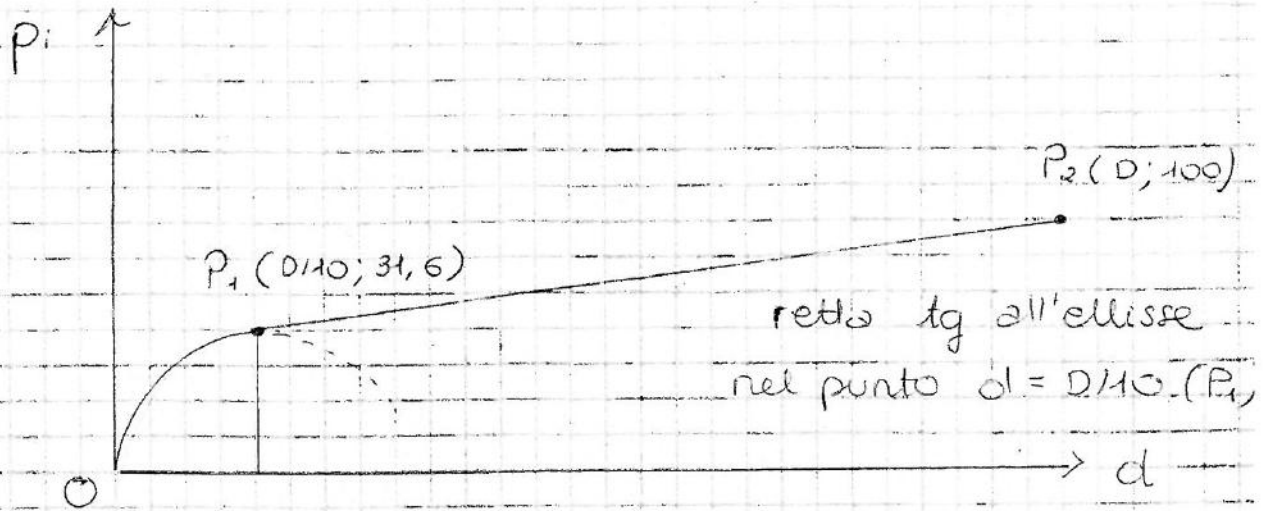 Pi
P₂ (D; 100)
P₁ (D/10; 31,6)
retta tg all'ellisse
nel punto d = D/10 (P₁,
O
d